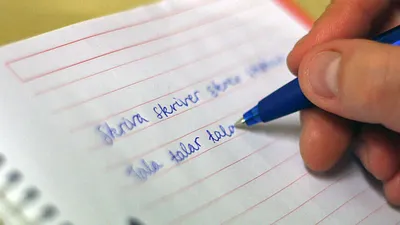 Skriva skriver skrev skrivit
Tala talar tala